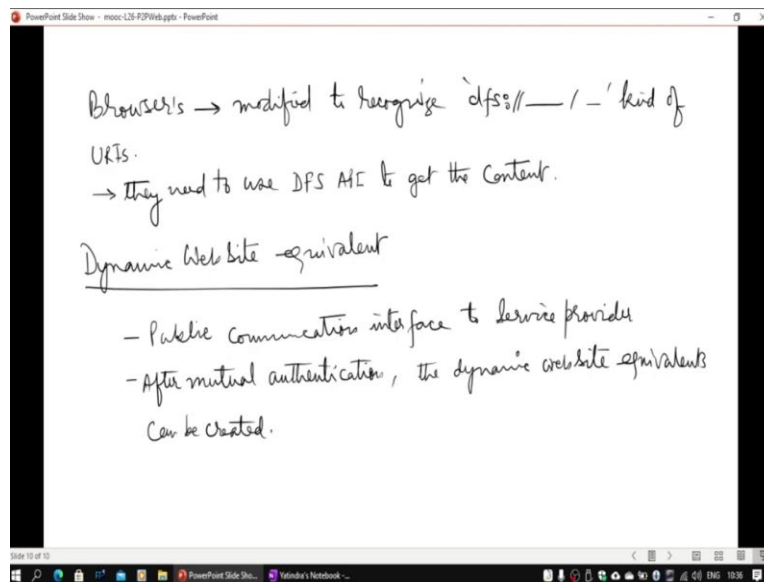 PowerPoint Slide Show - mooc-L26-P2PWeb.pptx - PowerPoint
Browser's → modified to recognize 'dfs://___/_' kind of
URIs.
→ they need to use DFS API to get the content.
Dynamic Web Site equivalent
- Public communication interface to Service provider
- After mutual authentication, the dynamic website equivalents
can be created.
Slide 10 of 10
PowerPoint Slide Sho... Yatindra's Notebook -... ENG 10:36